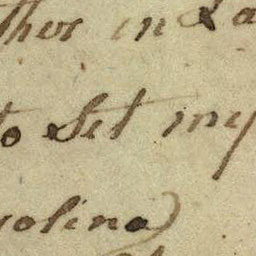 thor in La
to Set my
rolina)